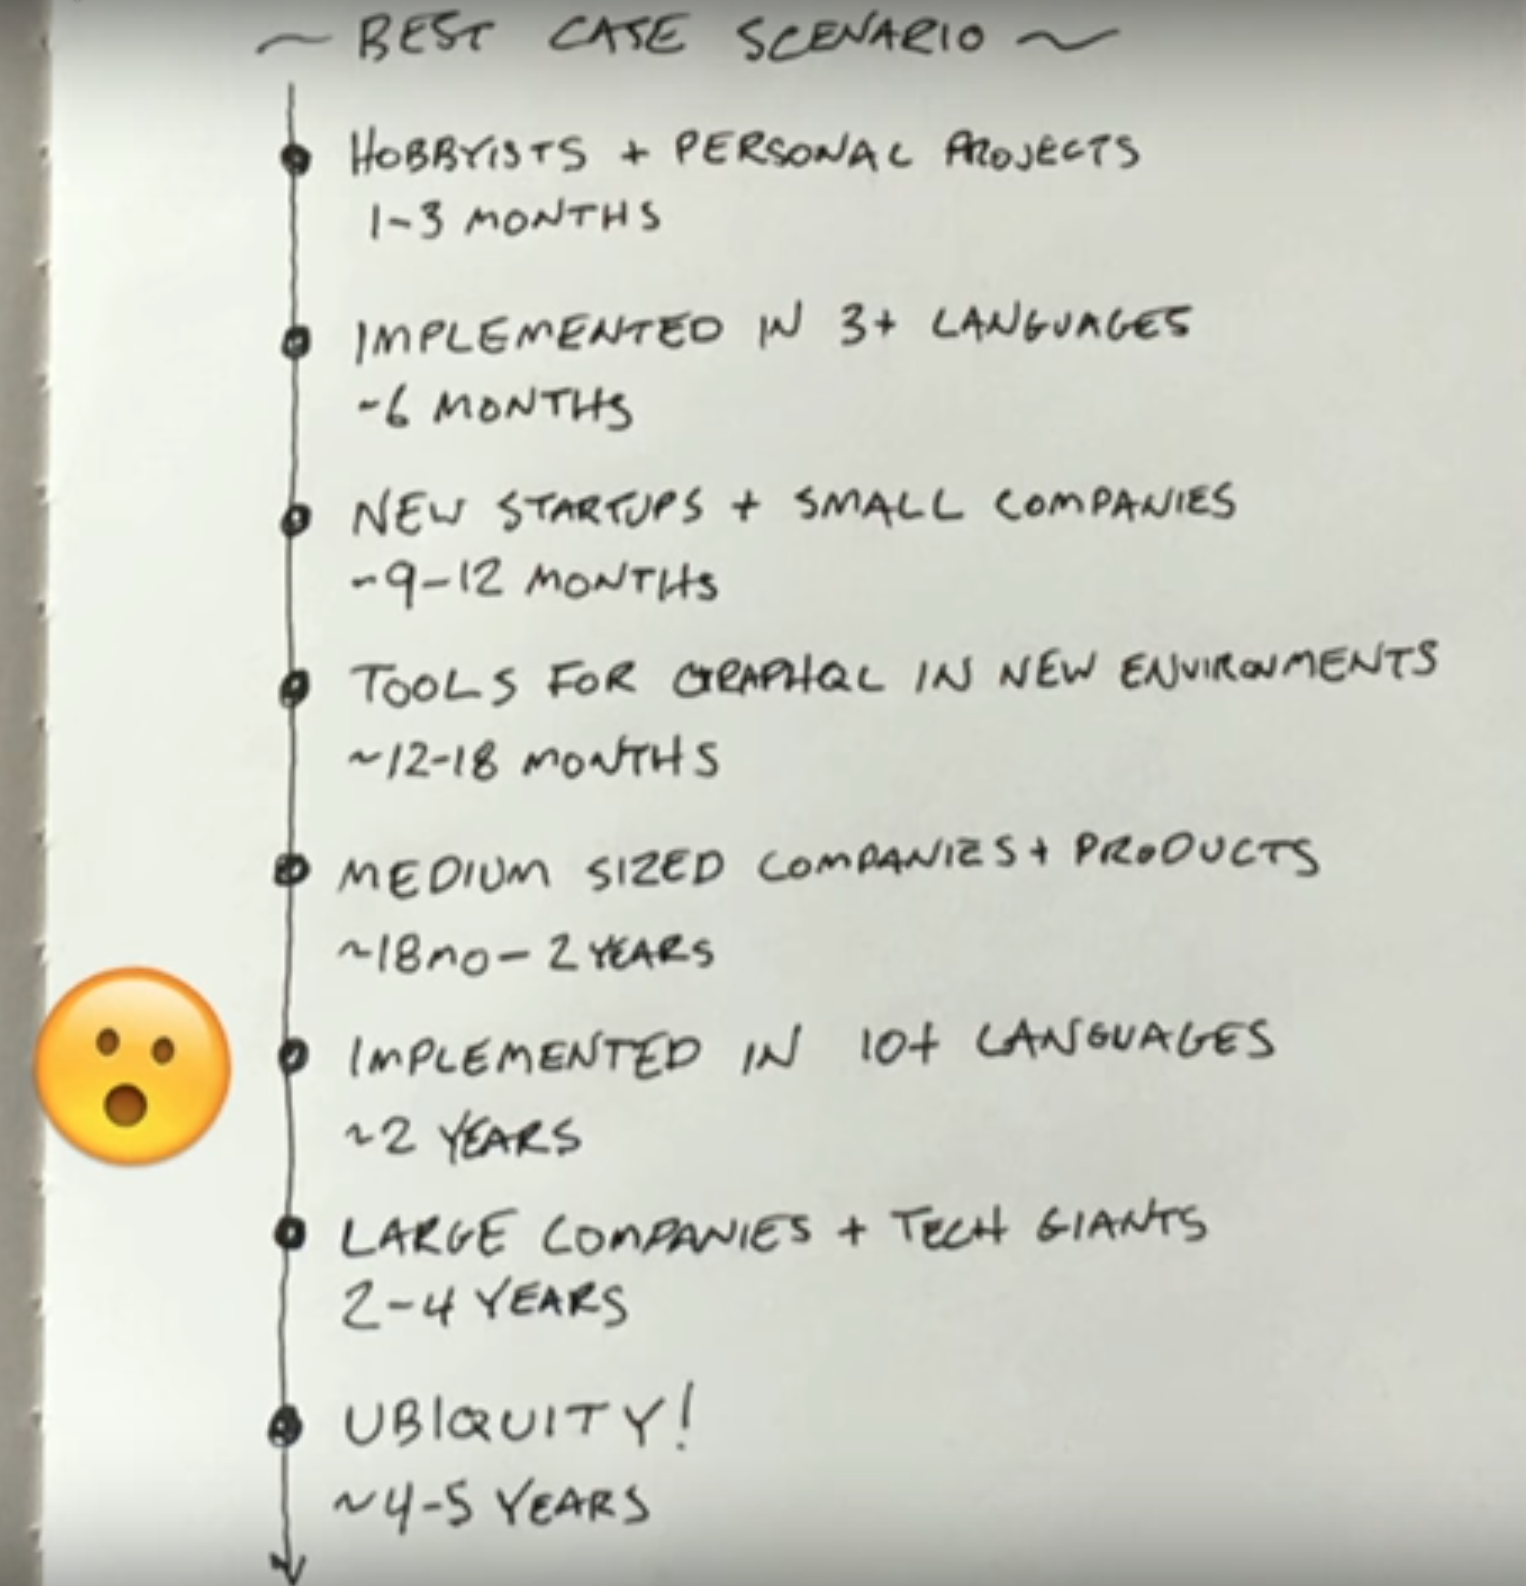 ~ BEST CASE SCENARIO ~
HOBBYISTS + PERSONAL PROJECTS
1-3 MONTHS
IMPLEMENTED IN 3+ LANGUAGES
~6 MONTHS
NEW STARTUPS + SMALL COMPANIES
~9-12 MONTHS
TOOLS FOR GRAPHQL IN NEW ENVIRONMENTS
~12-18 MONTHS
MEDIUM SIZED COMPANIES + PRODUCTS
~18MO - 2 YEARS
IMPLEMENTED IN 10+ LANGUAGES
~2 YEARS
LARGE COMPANIES + TECH GIANTS
2-4 YEARS
UBIQUITY!
~4-5 YEARS